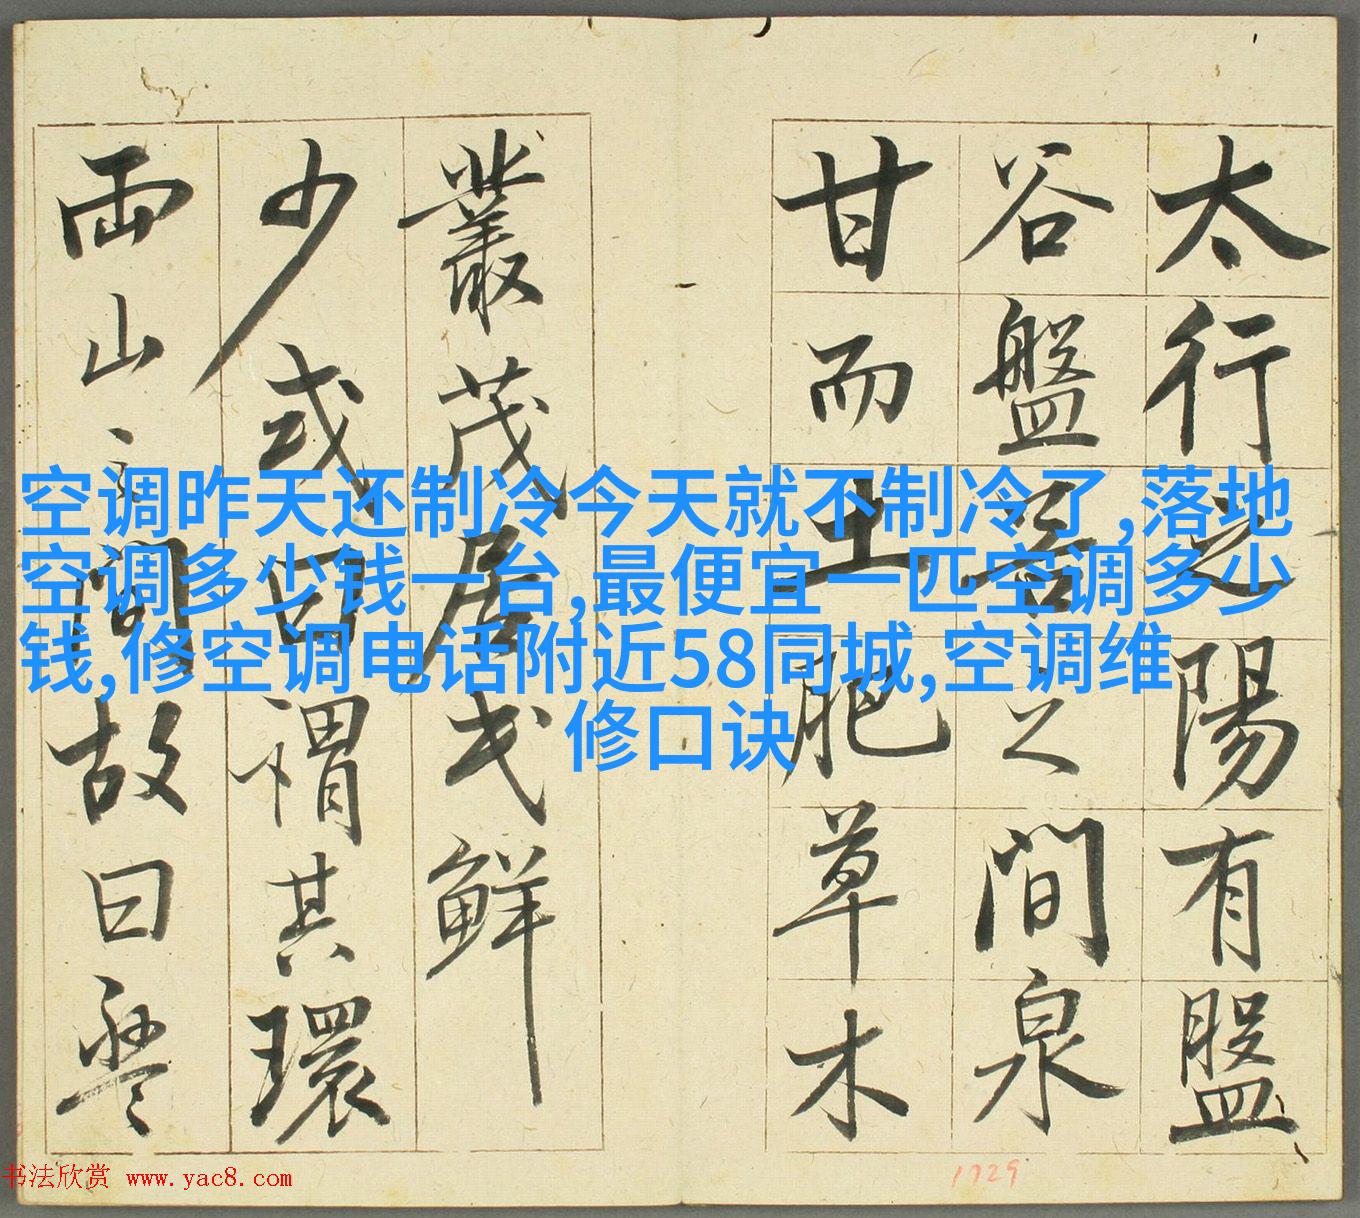 太行之陽有盤
谷盤谷之間泉
甘而土肥草木
叢茂居民鮮
少或曰謂其環
兩山之間故曰盤
空调昨天还制冷今天就不制冷了,落地
空调多少钱一台,最便宜一匹空调多少
钱,修空调电话附近58同城,空调维
修口诀
书法欣赏 www.yac8.com
1729